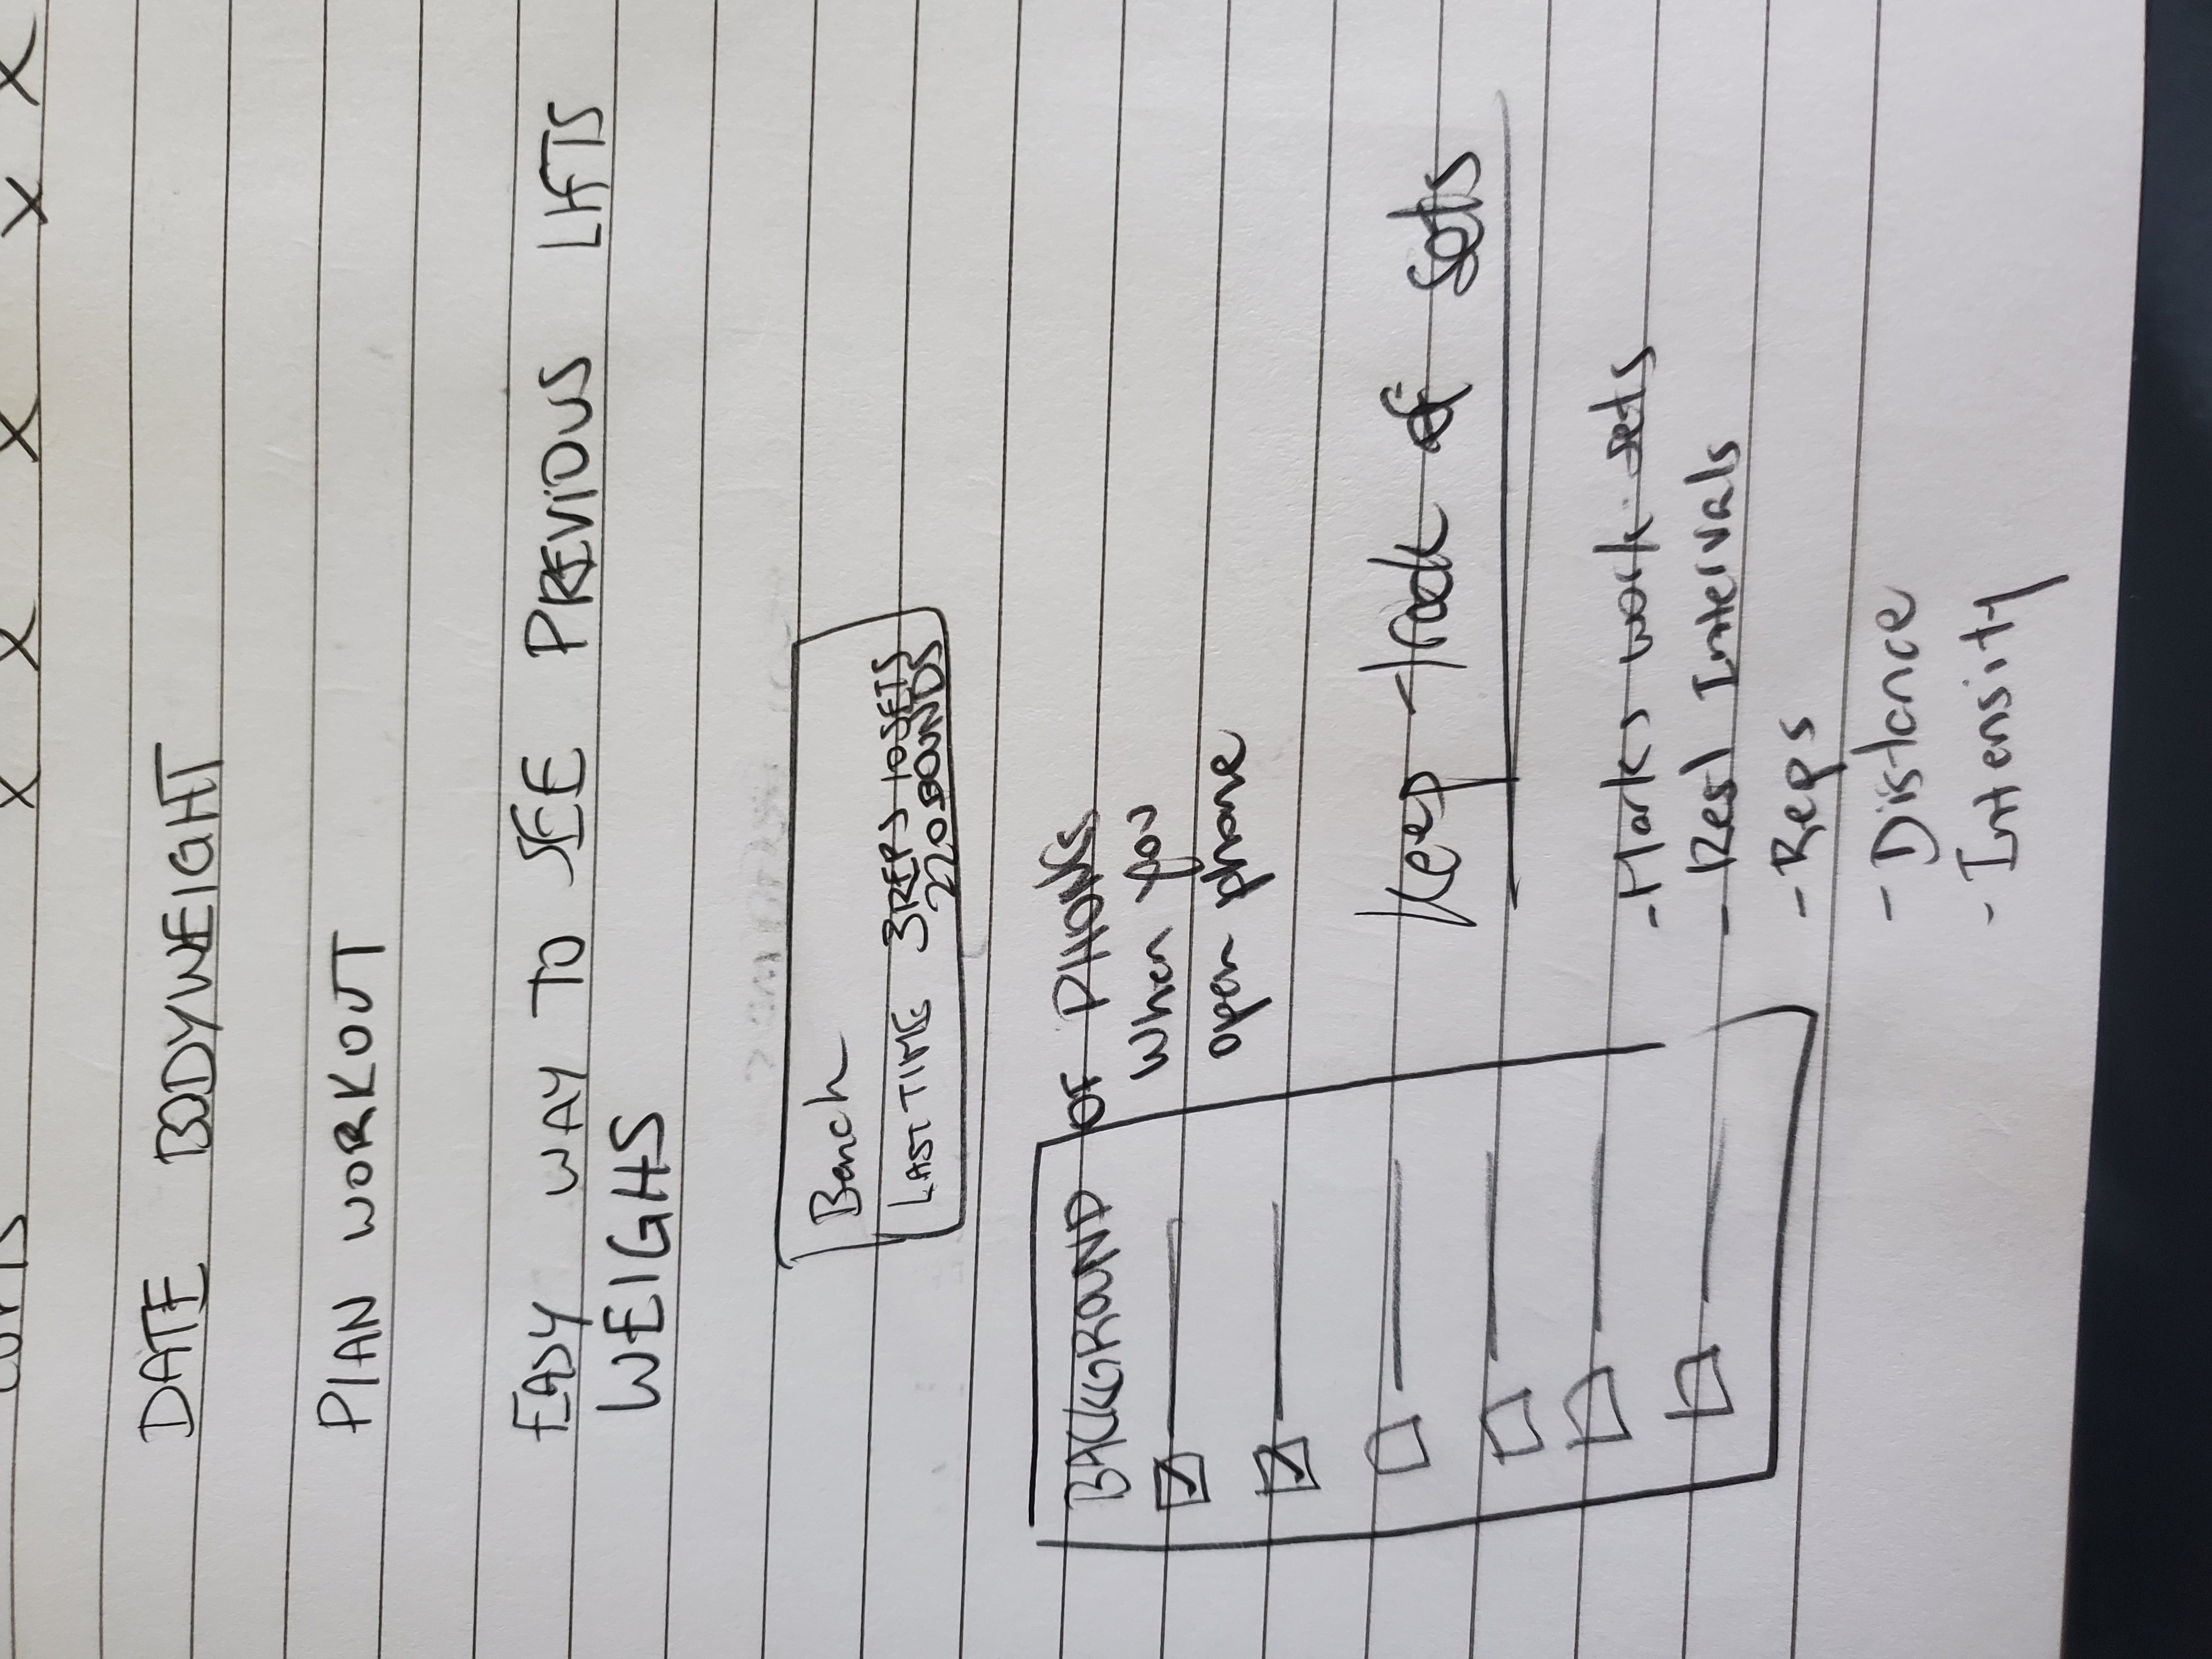 CURLS X X X X X
DATE BODYWEIGHT
PLAN WORKOUT
EASY WAY TO SEE PREVIOUS LIFTS
WEIGHS
Bench
LAST TIME 3 REPS 10 SETS
220 POUNDS
BACKGROUND OF PHONE
When you
open phone
Keep track of sets
- Marks work sets
- Rest Intervals
- Reps
- Distance
- Intensity